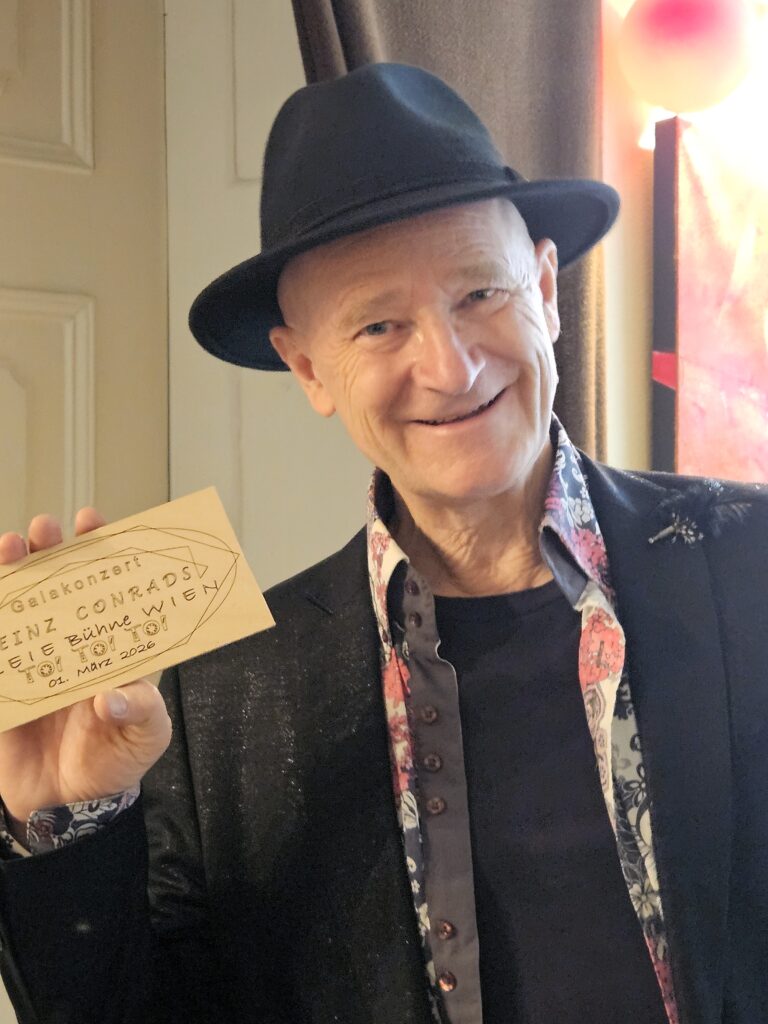 Galakonzert
EINZ CONRADS
EIE Bühne WIEN
TOI TOI TOI
01. März 2026